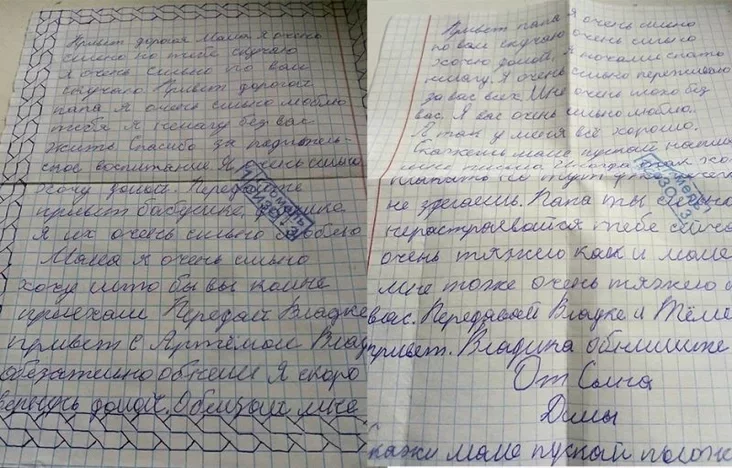 Привет дорогая Мама я очень
сильно по тебе скучаю
я очень сильно по вам
скучаю Привет дорогой
папа я очень сильно люблю
тебя я немагу без вас
жить Спасибо за родитель-
ское воспитание Я очень сильно
хочу домой. Передавай
привет бабушке,
я их очень сильно люблю
Мама я очень сильно
хочу што бы вы комне
приехали Передай Владке
привет с Артёмом Влад
обезательно обними Я скоро
вернусь домой.
Привет папа Я очень сильно
по вам скучаю очень сильно
хочу домой, Я ночами спать
немагу. Я очень сильно переживаю
за вас всех. Мне очень плохо без
вас. Я вас очень сильно люблю.
А так у меня всё хорошо.
маме пускай
не
нерастраевайся тебе сичас
очень тяжело как и маме
мне тоже очень тяжело
вас. Передавай Владке и Тёме
привет. Владика обнимите
От Сына
Димы
кажи маме пускай